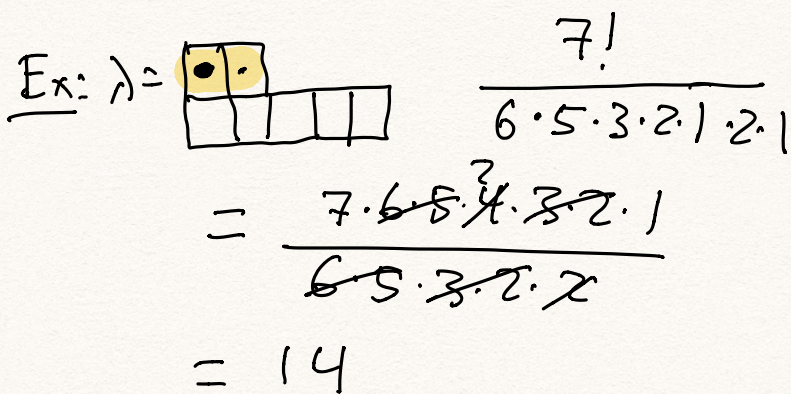 Ex: λ = 7! / 6·5·3·2·1·2·1
= 7·6·5·4·3·2·1 / 6·5·3·2·2 2
= 14